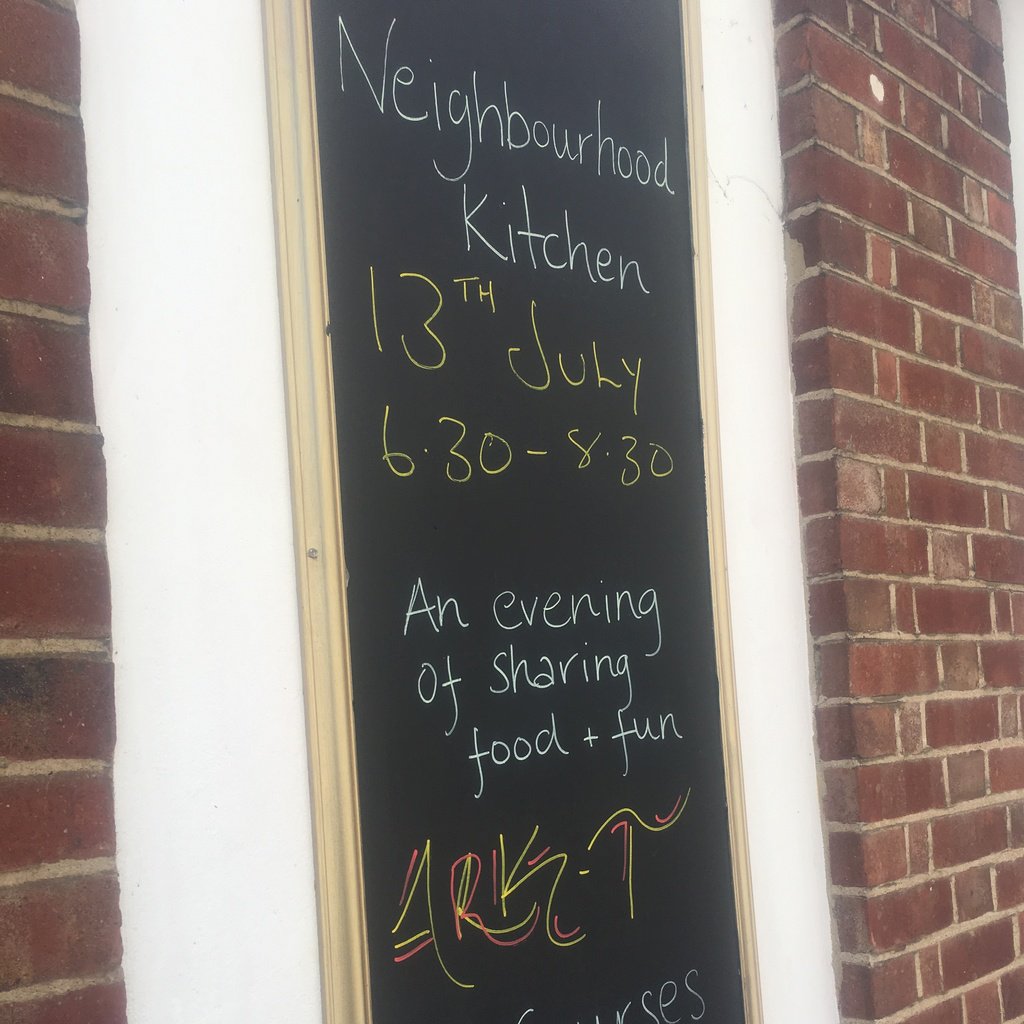 Neighbourhood
Kitchen
13TH July
6.30 - 8.30
An evening
of sharing
food + fun
ARK-T
Courses